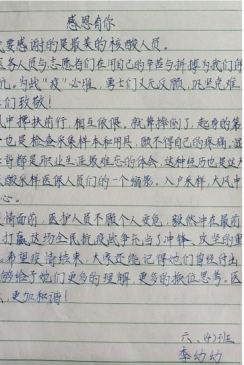 感恩有你
要感谢的是最美的核酸人员。
务人员与志愿者们在用自己的辛苦与拼搏为我们
为战“疫”必胜,勇士们义无反顾,
们致敬!
风中搀扶前行,相互依偎。就算摔倒了,起身的第
也是检查采集样本和用具,顾不得自己的疼痛。
都是职业生涯最难忘的体会,这种经历也是
酸采样医保人员们的一个缩影。入户采样,大风中
心。
情面前,医护人员不顾个人安危,毅然冲在最前
打赢这场全民抗疫战争充当了冲锋、攻坚的重
希望疫情结束,大家还能记得她们曾经付出
够给予她们更多的理解,更多的换位思考。医
更加和谐!
六、4)班
李幼幼